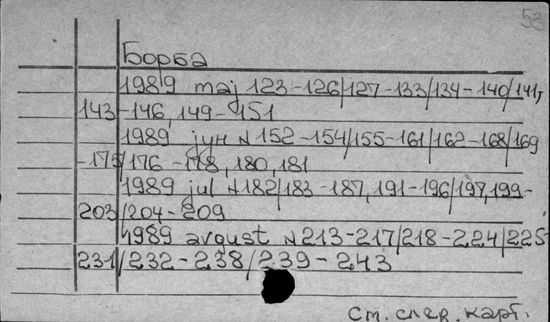 53
Борба
1989 maj 123-126/127-133/134-140/141,
143-146, 149-151
1989 јун N 152-154/155-161/162-168/169
-175/176-178, 180, 181
1989 jul N 182/183-187, 191-196/197, 199-
203/204-209
1989 avgust N 213-217/218-224/225-
231/232-238/239-243
См. след. карт.